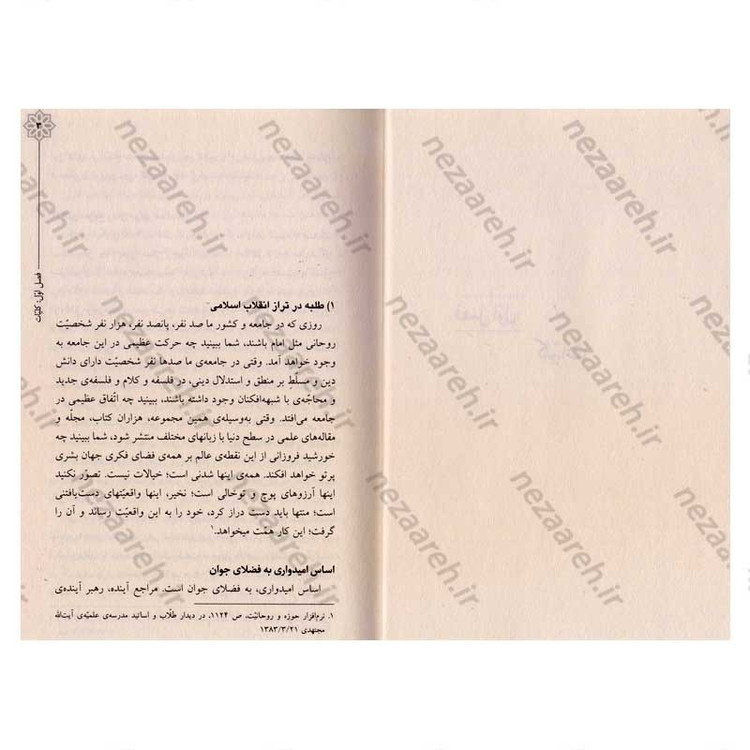 ۳
فصل اوّل: کلیّات
۱) طلبه در تراز انقلاب اسلامی
روزی که در جامعه و کشور ما صد نفر، پانصد نفر، هزار نفر شخصیّت
روحانی مثل امام باشند، شما ببینید چه حرکت عظیمی در این جامعه به
وجود خواهد آمد. وقتی در جامعه‌ی ما صدها نفر شخصیّت دارای دانش
دین و مسلّط بر منطق و استدلال دینی، در فلسفه و کلام و فلسفه‌ی جدید
و محاجّه‌ی با شبهه‌افکنان وجود داشته باشند، ببینید چه اتّفاق عظیمی در
جامعه می‌افتد. وقتی به‌وسیله‌ی همین مجموعه، هزاران کتاب، مجلّه و
مقاله‌های علمی در سطح دنیا با زبانهای مختلف منتشر شود، شما ببینید چه
خورشید فروزانی از این نقطه‌ی عالم بر همه‌ی فضای فکری جهان بشری
پرتو خواهد افکند. همه‌ی اینها شدنی است؛ خیالات نیست. تصوّر نکنید
اینها آرزوهای پوچ و توخالی است؛ نخیر، اینها واقعیّتهای دست‌یافتنی
است؛ منتها باید دست دراز کرد، خود را به این واقعیّت رساند و آن را
گرفت؛ این کار همّت میخواهد.۱
اساس امیدواری به فضلای جوان
اساس امیدواری، به فضلای جوان است. مراجع آینده، رهبر آینده‌ی
۱. نرم‌افزار حوزه و روحانیّت، ص ۱۱۲۴، در دیدار طلّاب و اساتید مدرسه‌ی علمیّه‌ی آیت‌الله
مجتهدی ۱۳۸۳/۳/۲۱
nezaareh.ir